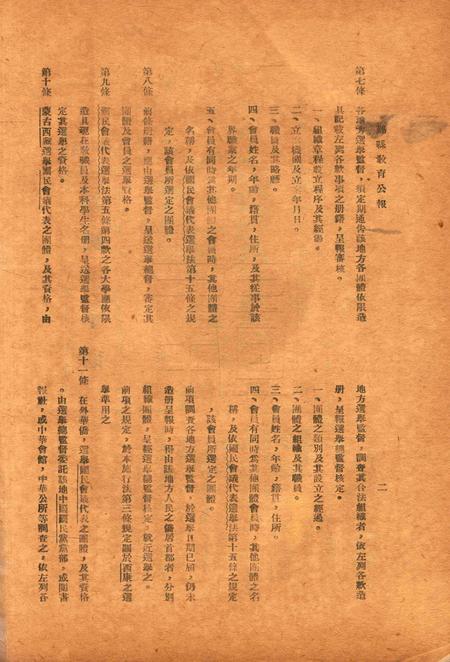 縣教育公報
二
第七條　各地方選舉監督，須定期通告該地方各團體依限造
具記載左列各款事項之册籍，呈報審核。
一、組織章程設立程序及其經過。
二、立案機關及立案年月日。
三、職員及其略歷。
四、會員姓名，年齡，籍貫，住所，及其從事於該
界職業之年期。
五、會員有同時為其他團體之會員時，其他團體之
名稱，及依國民會議代表選舉法第十五條之規
定，該會員所選定之團體。
第八條　前條册籍，應由選舉監督，呈送選舉總監督，審定其
團體及會員之選舉資格。
第九條　國民會議代表選舉法第五條第四款之各大學應依限
造具現在校職員及本科學生名册，呈送選舉監督核
定其選舉之資格。
第十條　蒙古西藏選舉國民會議代表之團體，及其資格，由
地方選舉監督，調查其合法組織者，依左列各款造
册，呈報選舉總監督核定。
一、團體之類別及其設立之經過。
二、團體之組織及其職員。
三、會員姓名，年齡，籍貫，住所。
四、會員有同時為其他團體會員時，其他團體之名
稱，及依國民會議代表選舉法第十五條之規定
，該會員所選定之團體。
前項調查各地方選舉監督，於選舉日期已屆，仍未
造册呈報時，得由該地方人民之僑居首都者，分別
組織團體，呈經選舉總監督核定，就近選舉之。
前項之規定，於本施行法第三條規定關於西康之選
舉準用之
第十一條　在外華僑，選舉國民會議代表之團體，及其資格
。由選舉總監督委託該地中國國民黨黨部，或閱書
報社，或中華會館，中華公所等調查之，依左列各